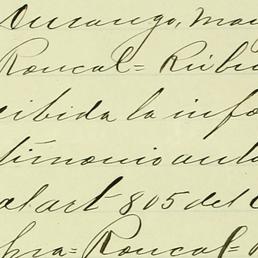 Durango, Ma
Roncal= Rubi
cibida la info
timonio auto
al art 805 del C
pra= Roncal= R